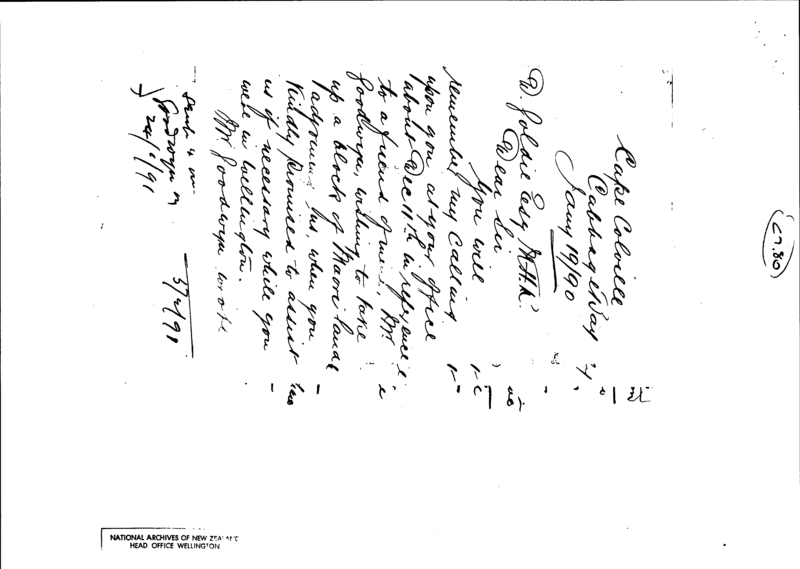 Cape Colville
Cabbage Bay
Jany 19/90
D. Goldie Esq M.H.R.
Dear Sir
You will
remember my calling
upon you at your office
about Dec 11th in reference
to a friend of mine, Mr
Goodwyn, wishing to take
up a block of Maori land
adjoining his, when you
kindly promised to assist
us if necessary while you
were in Wellington.
Mr Goodwyn wrote
Goodwyn
24/1/91
3/2/91
C7.80
NATIONAL ARCHIVES OF NEW ZEALAND
HEAD OFFICE WELLINGTON